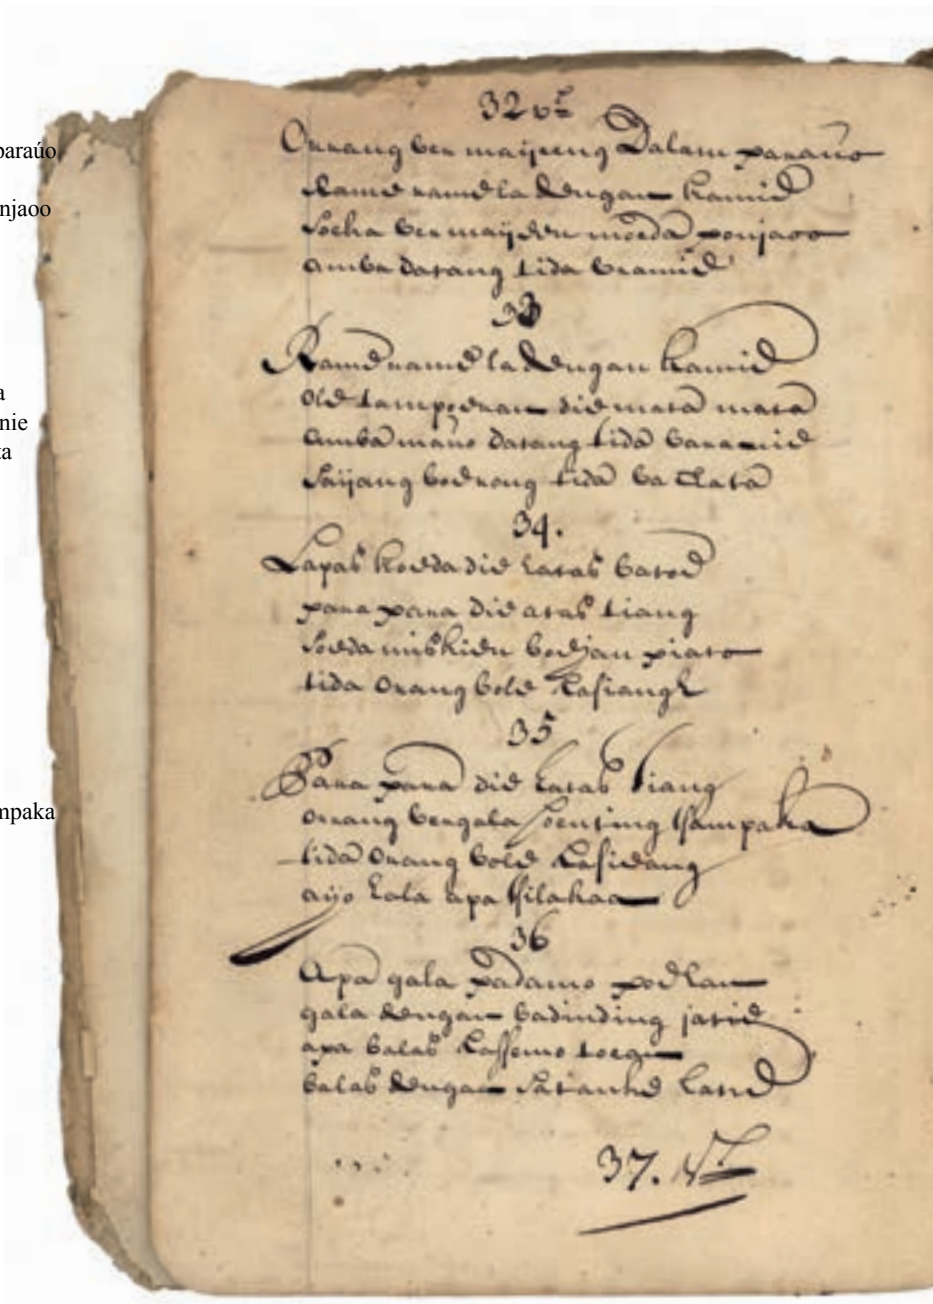 paraúo
njaoo
a
nie
ta
mpaka
32 vs
Orrang ber maijreng Dalam paraúo
Rame rame la dengan kamie
soeka ber maijen moeda ponjaoo
amba datang tida bramie
33
Rame rame la dengan kamie
ole tampoeran die mata mata
amba maúo datang tida baramie
saijang boerong tida ba
34.
Lapas koeda die batoe
para para die atas tiang
soeda miskien boejan piato
tida orang bole kasiang
35
Para para die tiang
orrang bergala soenting tsampaka
tida orang bole kasieang
aijo lala apa tsilakaa
36
Apa gala padamo poelan
gala dengan badinding jatie
apa balas toean
balas dengan latie
37. Vs